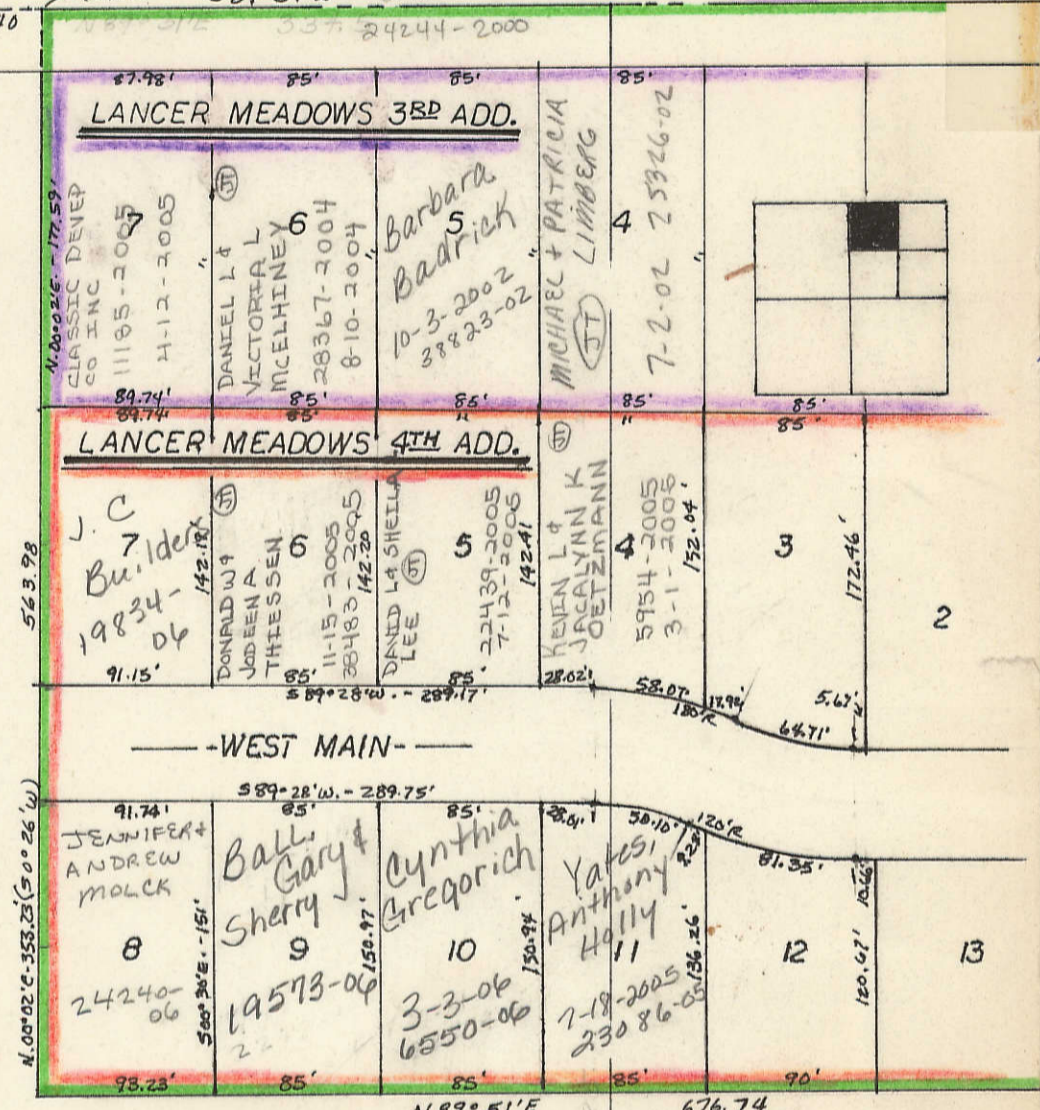 24244-2000
87.98' 85' 85' 85'
LANCER MEADOWS 3RD ADD.
N.00°02'E. - 177.59'
CLASSIC DEVEP
CO INC
7
11185-2005
4-12-2005
"
JT
DANIEL L &
VICTORIA L
MCELHINEY
6
28367-2004
8-10-2004
"
Barbara
5
Badrick
10-3-2002
38823-02
"
MICHAEL & PATRICIA
JT LIMBERG
4
7-2-02 25326-02
"
89.74' 85' 85' 85' 85'
89.74' 85' " " 85'
LANCER MEADOWS 4TH ADD.
L. C
7
Builders
19834-
06
142.19'
91.15'
JT
DONALD W &
JODEEN A
THIESSEN
6
11-15-2005
38483-2005
142.20
85'
DAVID L & SHEILA
LEE JT
5
22439-2005
7-12-2005
142.41
85'
JT
KEVIN L &
JACALYNN K
OETZMANN
4
5954-2005
3-1-2005
152.04'
28.02'
3
172.46'
2
563.98
S 89°28'W. - 289.17'
58.07'
180'R
17.92'
64.71'
5.67'
-WEST MAIN-
S 89°28'W. - 289.75'
N.00°02'E-353.23'(S 0°26'W)
91.74' 85' 85' 28.01'
50.10'
120'R
9.28'
81.35'
10.66'
JENNIFER &
ANDREW
MOLCK
8
24240-
06
S00°30'E. - 151'
Ball,
Gary &
Sherry
9
19573-06
150.97'
Cynthia
Gregorich
10
3-3-06
6550-06
150.94'
Yates,
Anthony
Holly
11
7-18-2005
23086-05
136.26'
12
120.67'
13
93.23' 85' 85' 85' 90'
N.89°51'E 676.74